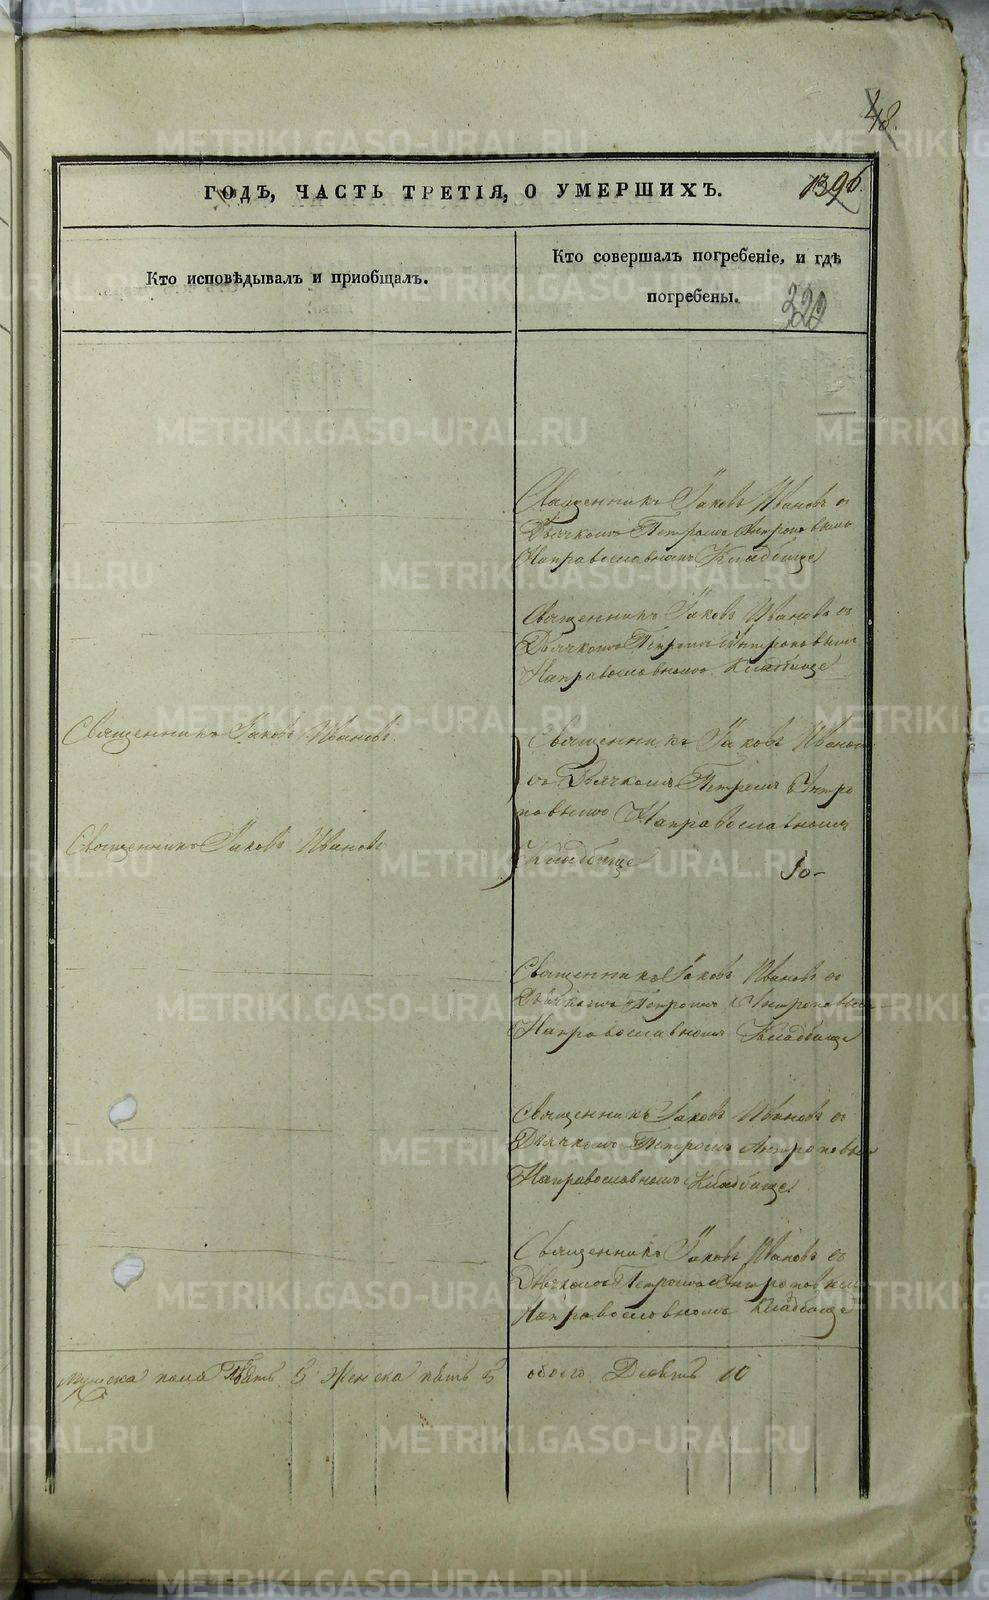 48.
ГОДЪ, ЧАСТЬ ТРЕТІЯ, О УМЕРШИХЪ.
1396.
Кто исповѣдывалъ и пріобщалъ.
Кто совершалъ погребеніе, и гдѣ
погребены.
322
Священникъ Іаковъ Ивановъ съ
Дьячкомъ Петромъ Антроповымъ
На православномъ Кладбище
Священникъ Іаковъ Ивановъ съ
Дьячкомъ Петромъ Антроповымъ
На православномъ Кладбище
Священникъ Іаковъ Ивановъ
Священникъ Іаковъ Ивановъ
съ Дьячкомъ Петромъ Антро
повымъ На православномъ
Священникъ Іаковъ Ивановъ
Кладбище
10-
Священникъ Іаковъ Ивановъ съ
Дьячкомъ Петромъ Антроповымъ
На православномъ Кладбище
Священникъ Іаковъ Ивановъ съ
Дьячкомъ Петромъ Антроповым
На православномъ Кладбище.
Священникъ Іаковъ Ивановъ съ
Дьячкомъ Петромъ Антроповымъ
На православномъ Кладбище
мужска пола Пять 5 Женска пять 5 обоего Десять 10
METRIKI.GASO-URAL.RU